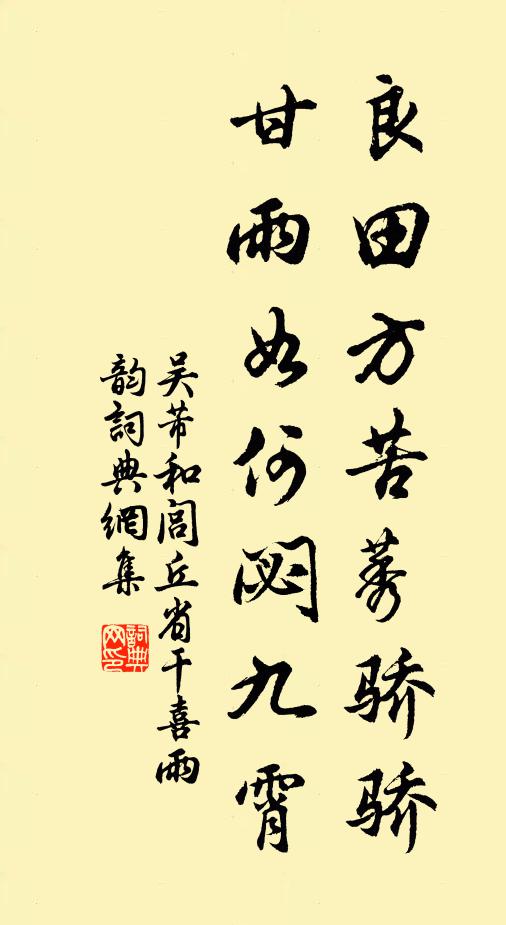 良田方苦莠骄骄
甘雨如何閟九霄
吴芾和闾丘省干喜雨
韵詞典網集
詞典
网印